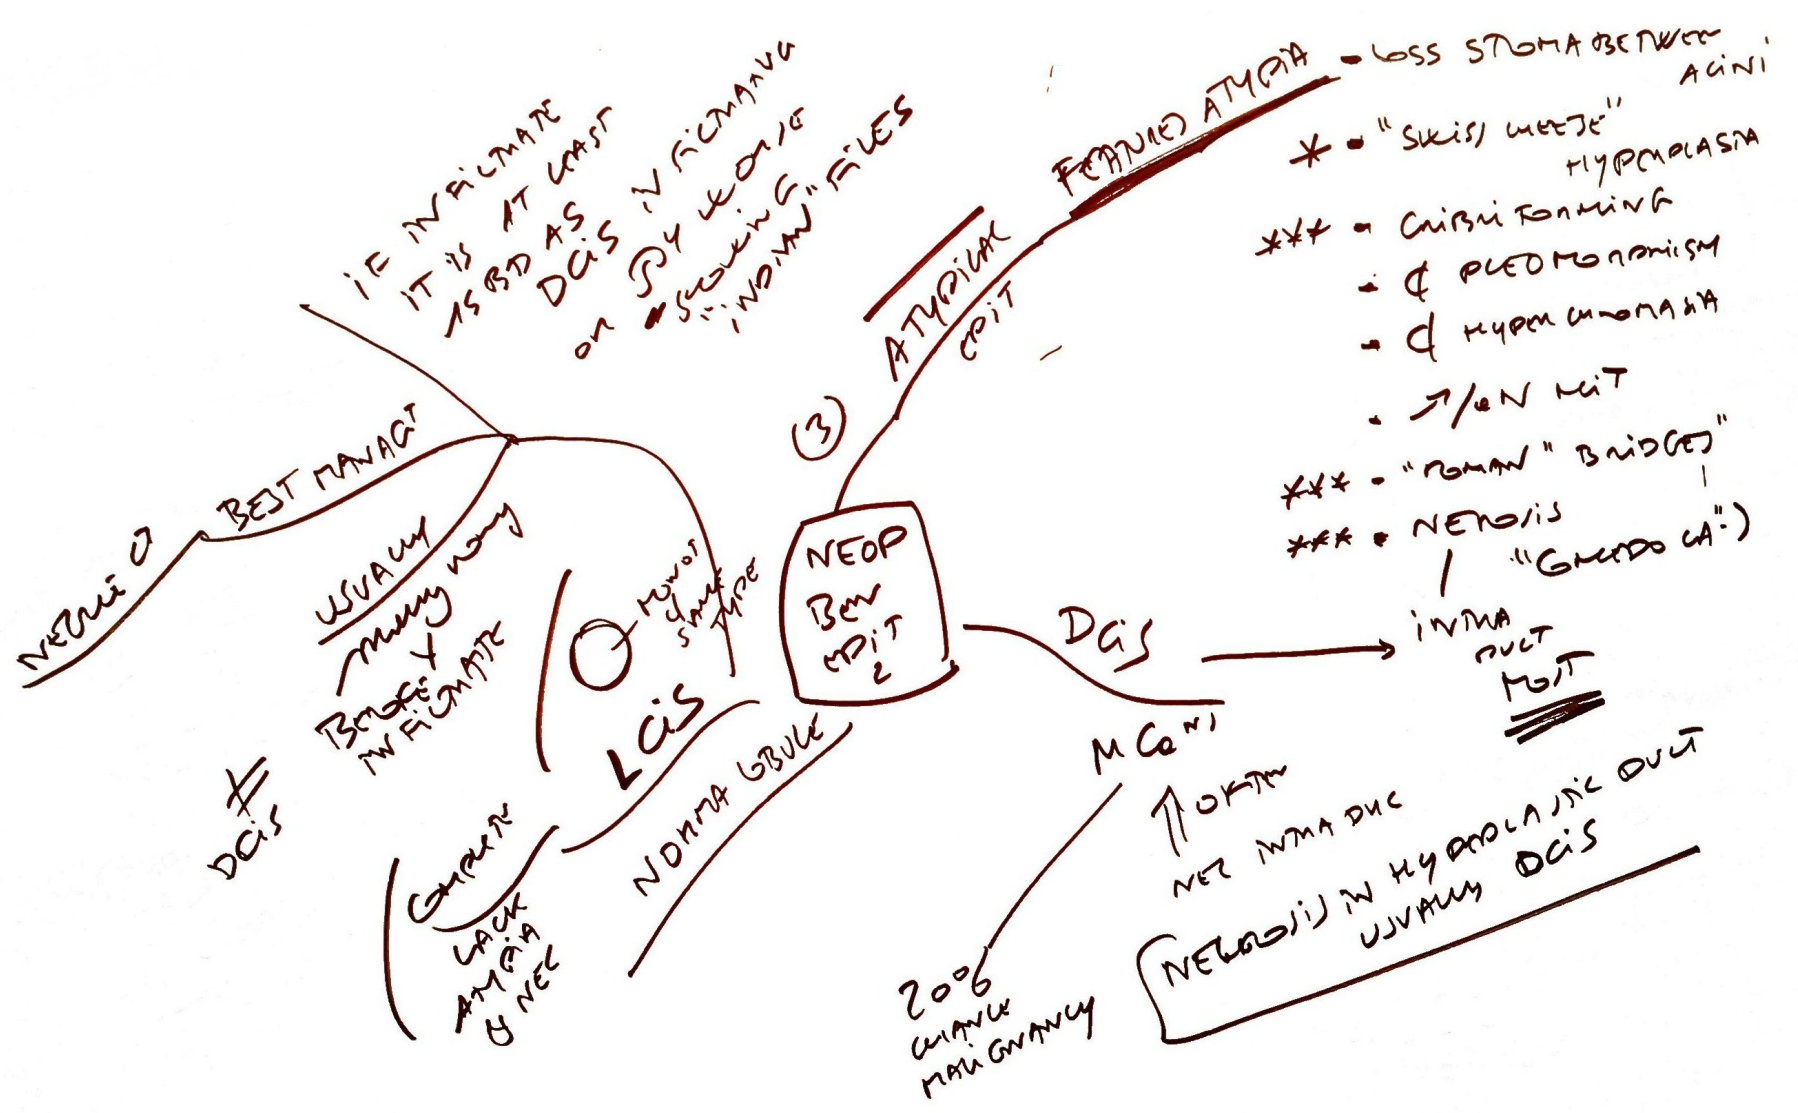 NEOP
BEN
EPIT
2
(3)
ATYPICAL
EPIT
FEATURES ATYPIA
- LOSS STROMA BETWEEN
ACINI
* - "SWISS CHEESE"
HYPERPLASIA
*** - CRIBRIFORMING
- ₵ PLEOMORPHISM
- ₵ HYPERCHROMASIA
- ↗/ABN MIT
*** - "ROMAN" BRIDGES"
*** - NECROSIS
"COMEDO CA")
INTRA
DUCT
MOST
DCiS
MC
↑↑ OFTEN
NEC INTRA DUC
NECROSIS IN HYPERPLASTIC DUCT
USUALLY DCiS
20%
CHANCE
MALIGNANCY
NORMA LOBULE
LCiS
MONOT
Y
SAME
TYPE
COMPLETE
LACK
ATYPIA
Y NEC
USUALLY
MANY
Y
BEFORE
INFILTRATE
≠
DCiS
BEST MANAGT
IF INFILTRATE
IT IS AT LEAST
AS BD AS
DCiS INFILTRATVG
OR
"INDIAN" FILES